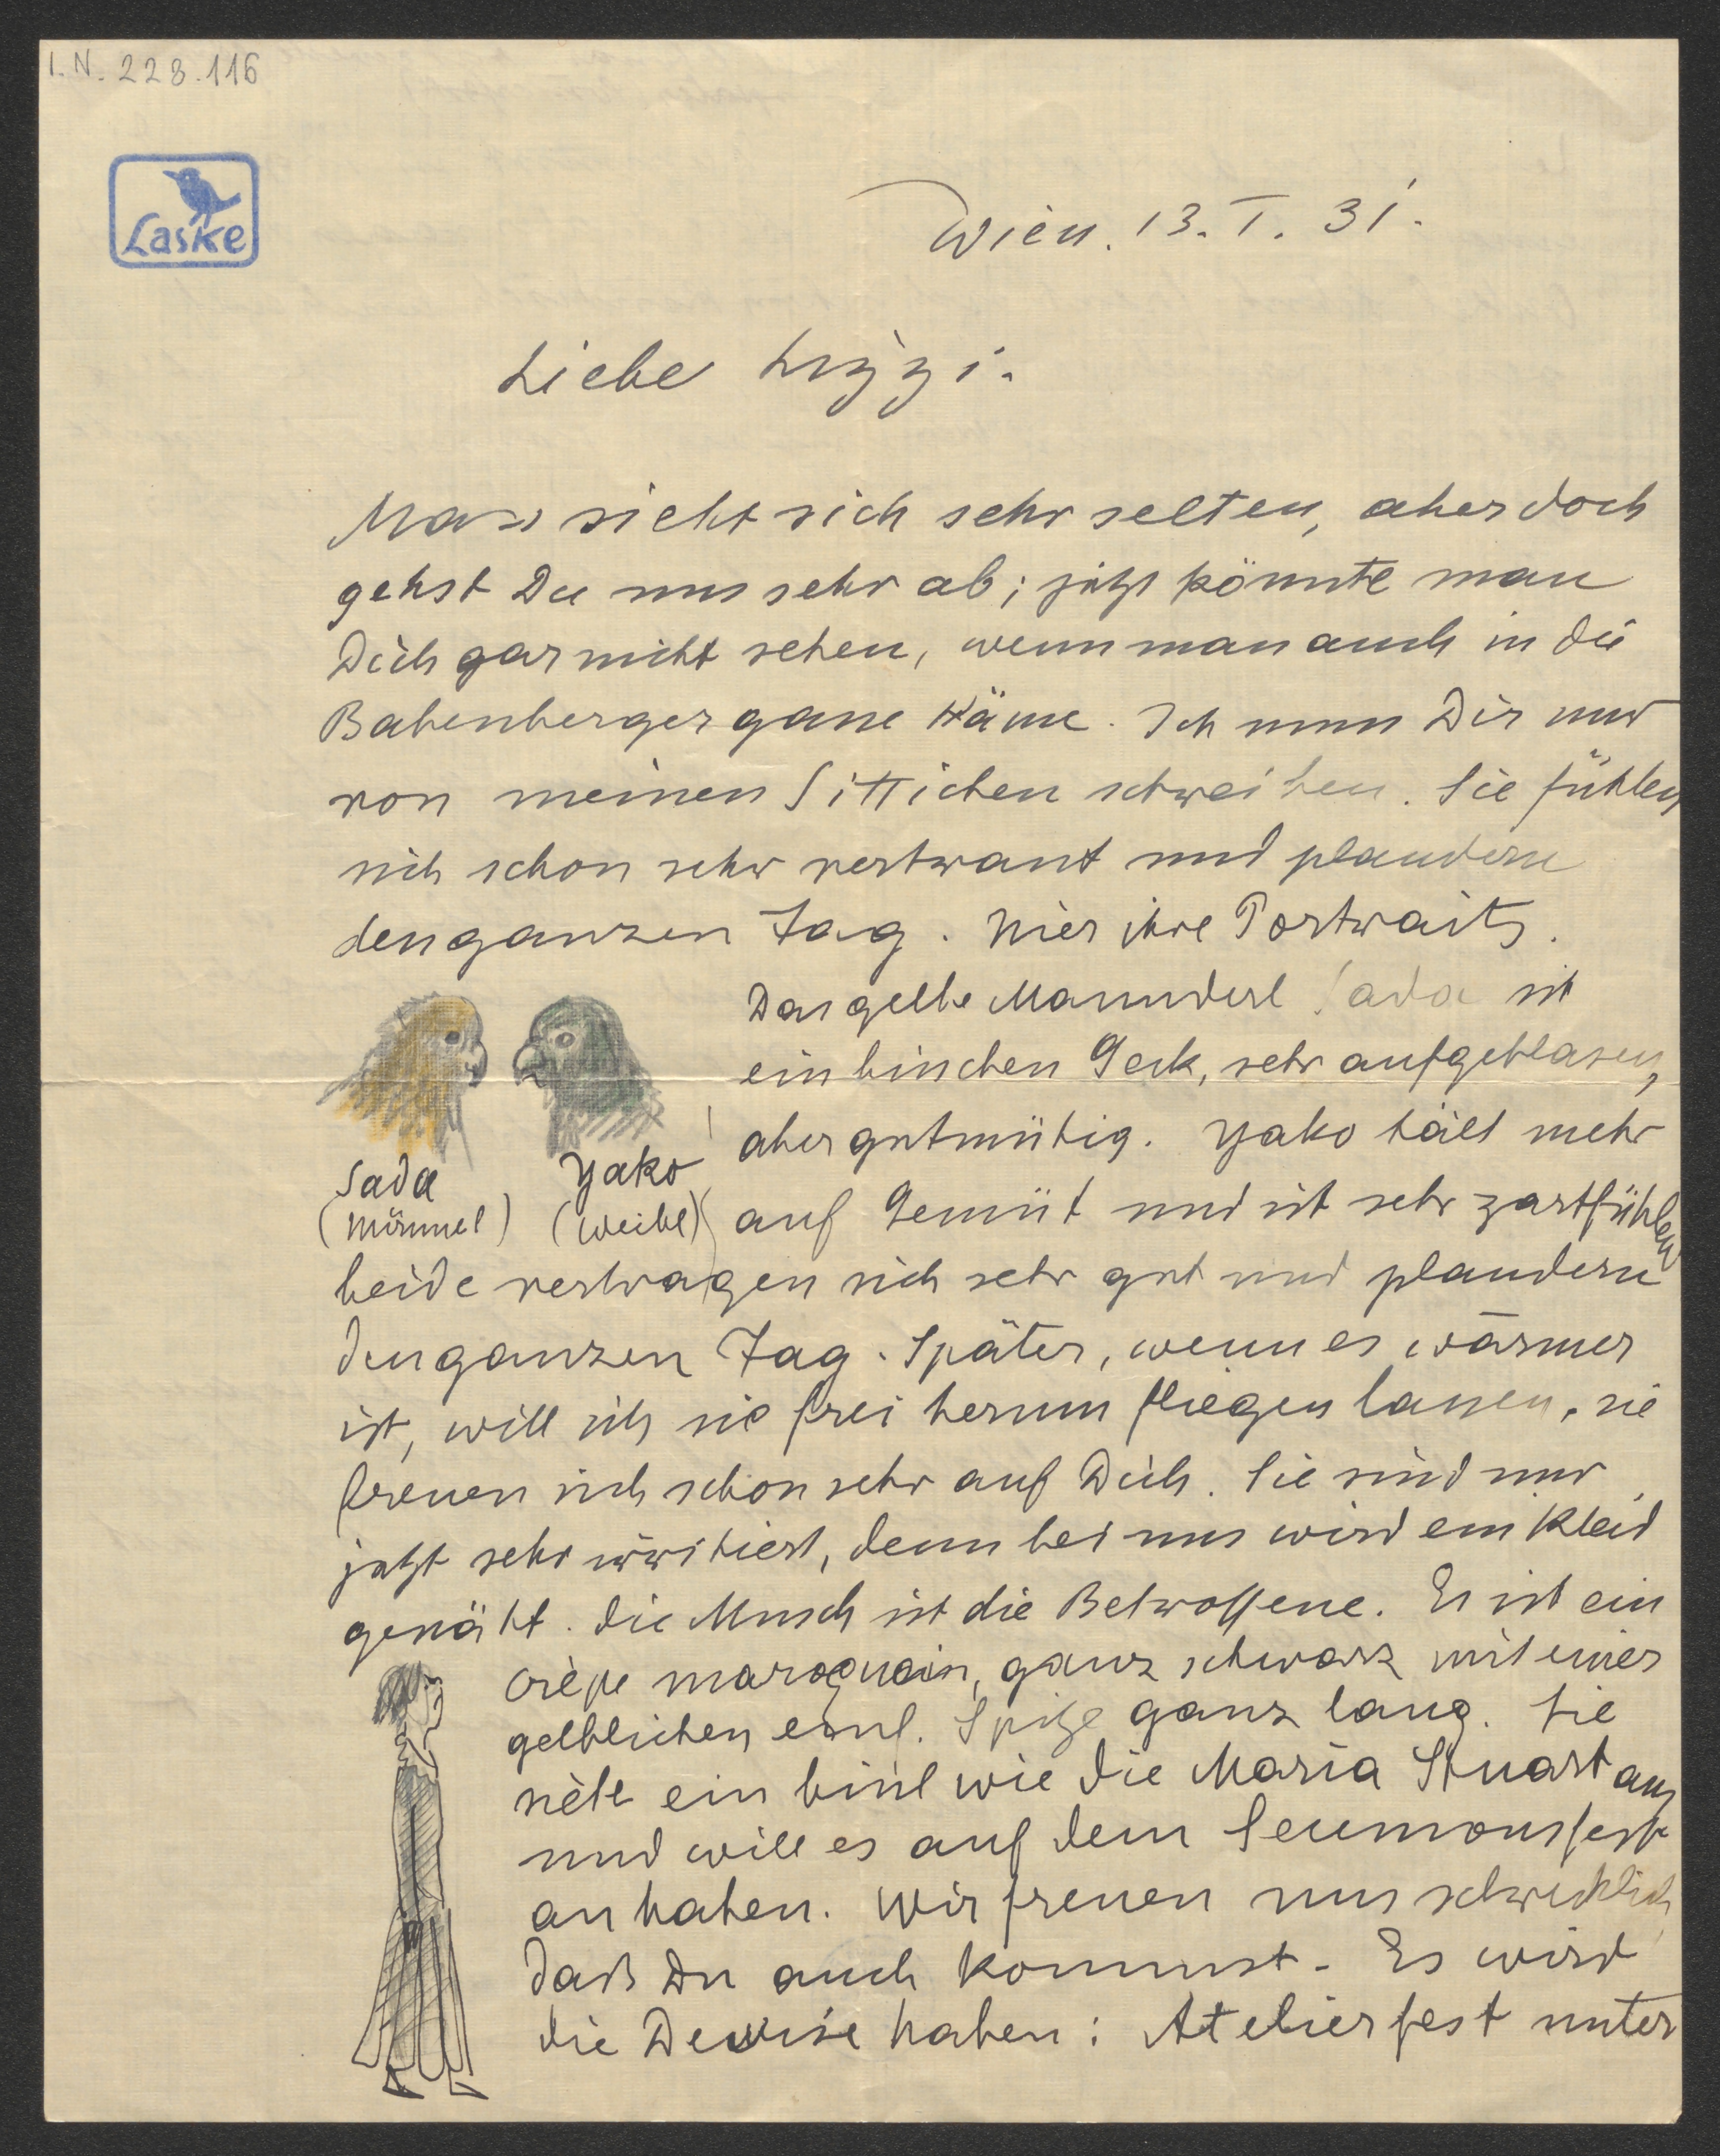 I.N. 228.116
Laske
Wien. 13. I. 31.
Liebe Lizzi.
Man sieht sich sehr selten, aber doch
gehst Du uns sehr ab; jetzt könnte man
Dich gar nicht sehen, wenn man auch in die
Babenbergergasse käme. Ich muss Dir nur
von meinen Sittichen schreiben. Sie fühlen
sich schon sehr vertraut und plaudern
den ganzen Tag. Hier ihre Portraits.
Das gelbe Mannderl Sada ist
ein bisschen Geck, sehr aufgeblasen,
aber gutmütig. Yako hält mehr
Sada Yako
(Männel) (Weibl) auf Gemüt und ist sehr zartfühlend
beide vertragen sich sehr gut und plaudern
den ganzen Tag. Später, wenn es wärmer
ist, will ich sie frei herum fliegen lassen, sie
freuen sich schon sehr auf Dich. Sie sind nur
jetzt sehr irritiert, denn bei uns wird ein Kleid
genäht. Die Musch ist die Betroffene. Es ist ein
crèpe maroquain, ganz schwarz mit einer
gelblichen Spitze ganz lang. Sie
sieht ein bissl wie die Maria Stuart aus
und will es auf dem
an haben. Wir freuen uns schrecklich,
daß Du auch kommst. Es wird
die Devise haben: Atelierfest unter